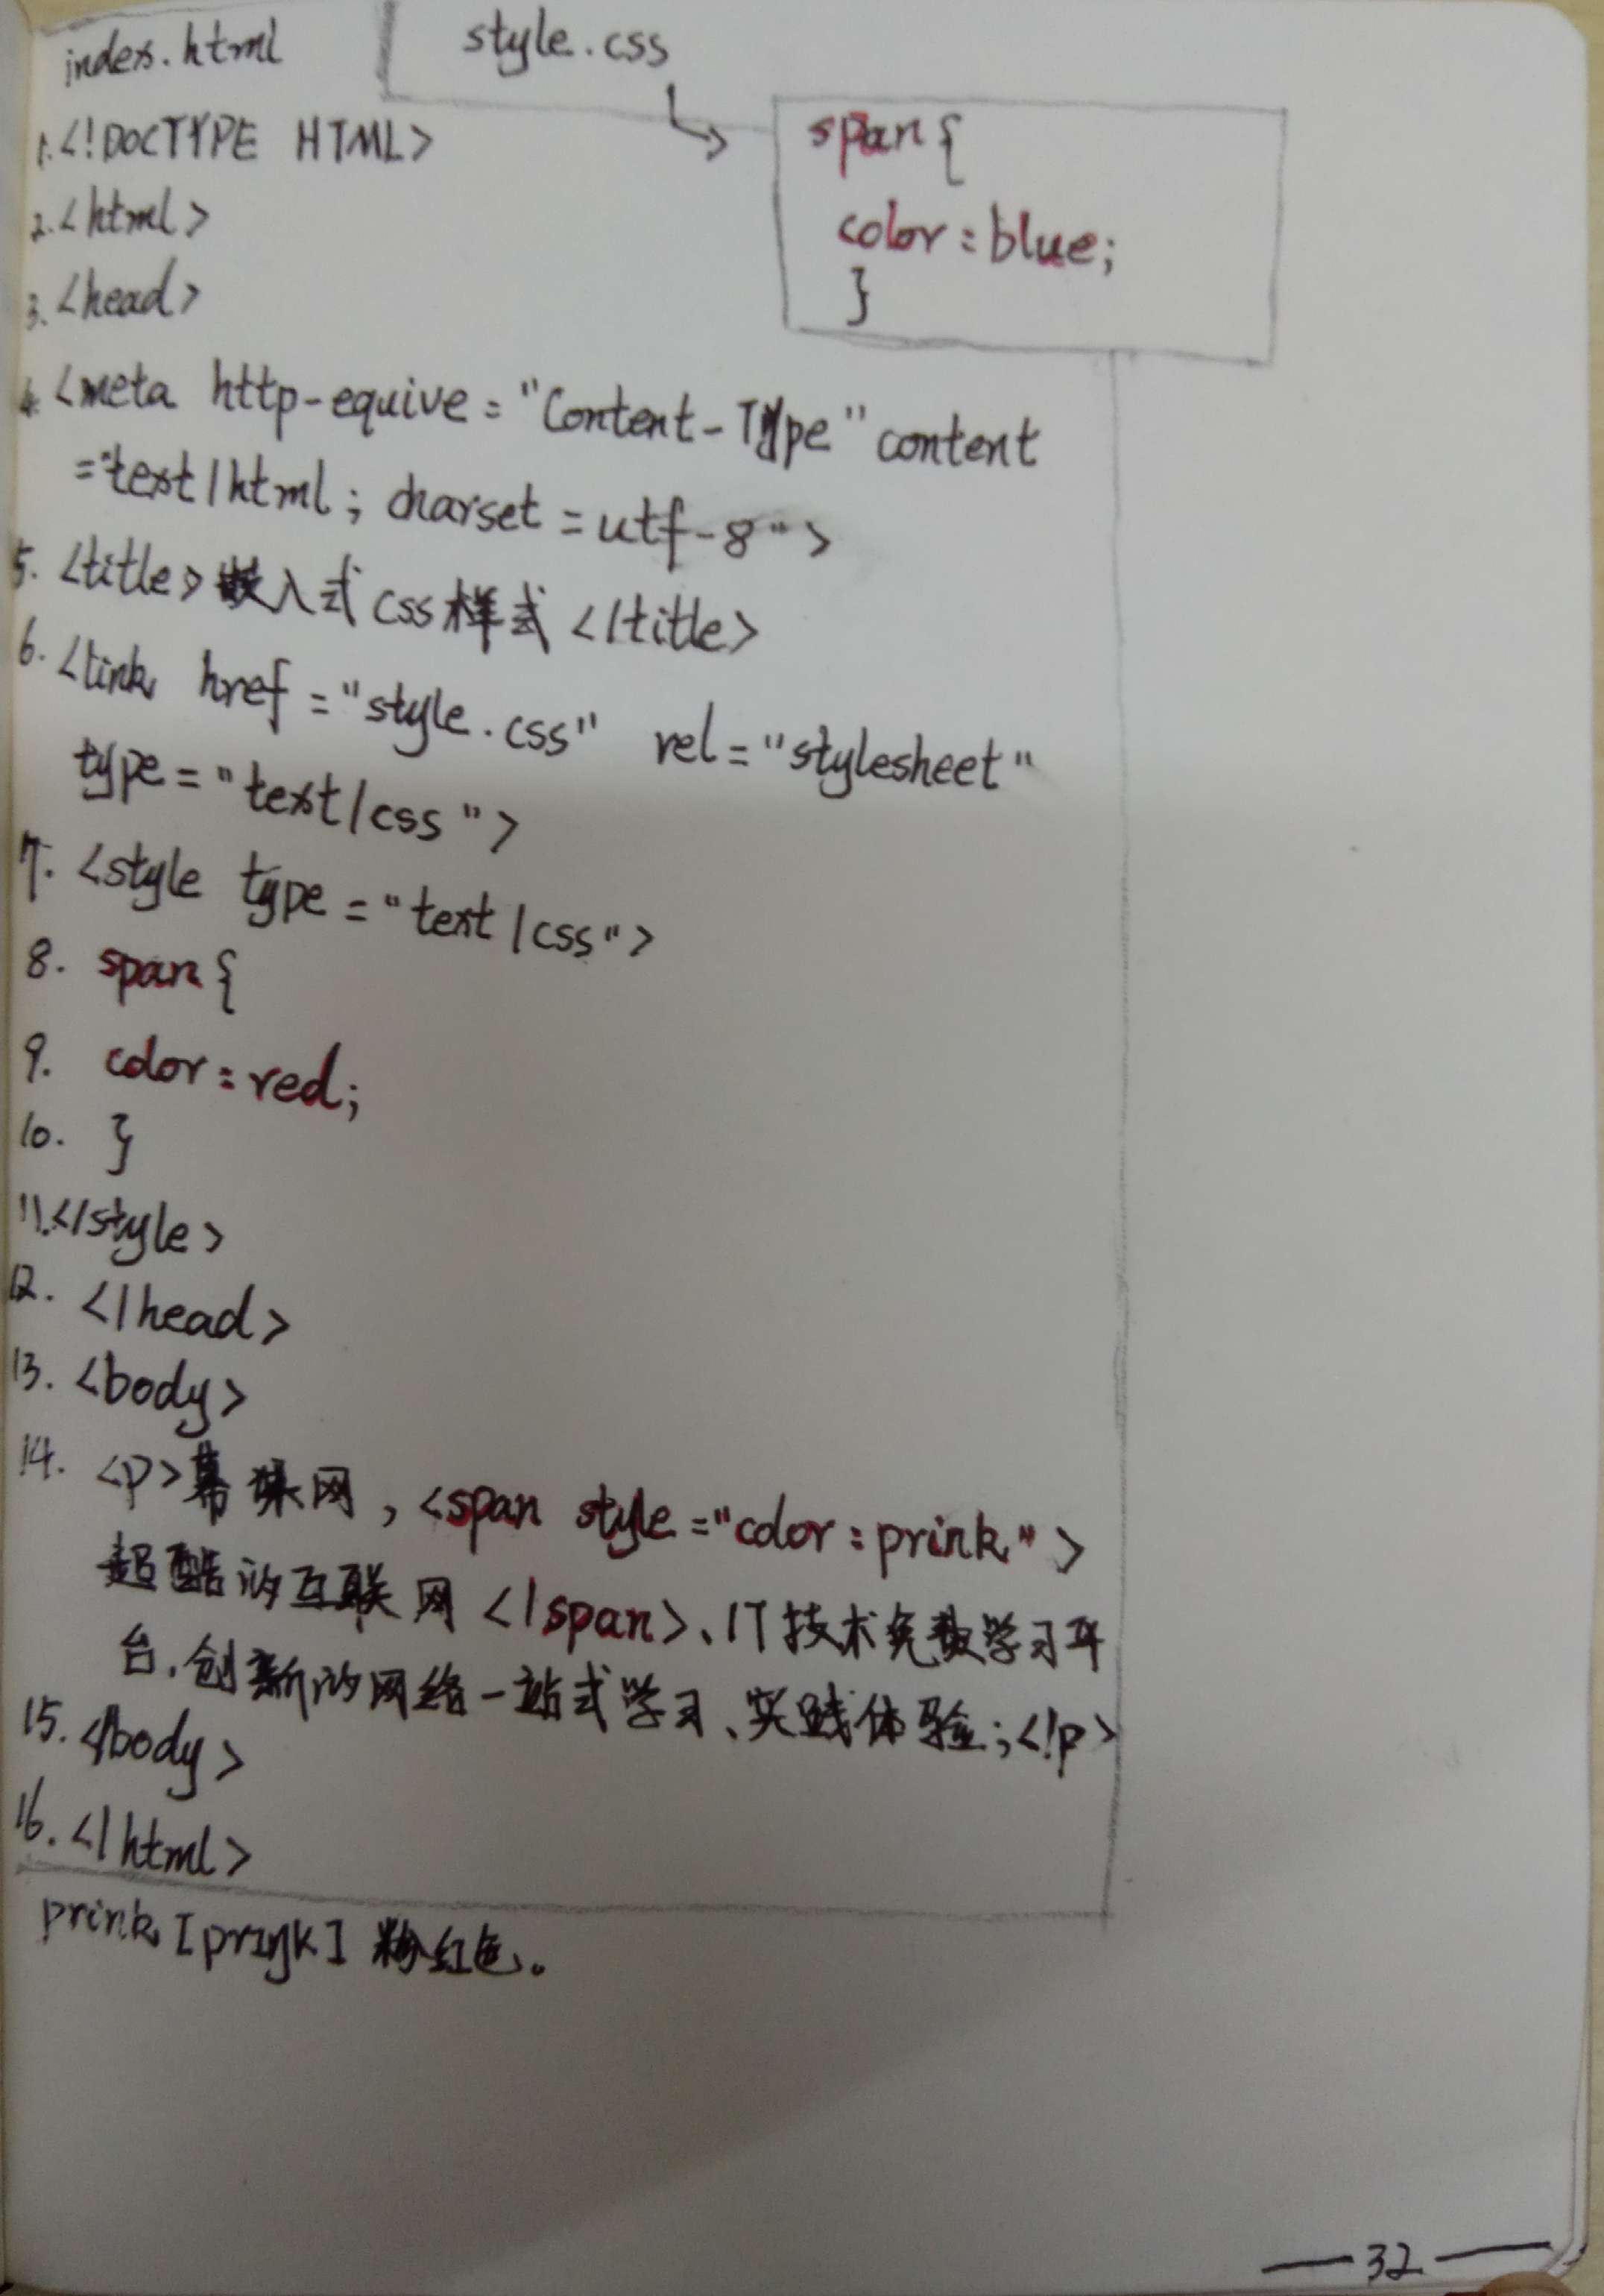 index.html
style.css
span{
color:blue;
}
1.<!DOCTYPE HTML>
2.<html>
3.<head>
4.<meta http-equive="Content-Type" content
="text/html; charset=utf-8">
5.<title>嵌入式css样式</title>
6.<link href="style.css" rel="stylesheet"
type="text/css">
7.<style type="text/css">
8. span{
9. color:red;
10. }
11.</style>
12. </head>
13. <body>
14. <p>慕课网,<span style="color:prink">
超酷的互联网</span>、IT技术免费学习平
台,创新的网络一站式学习、实践体验;</p>
15.</body>
16.</html>
prink [prɪŋk] 粉红色。
—32—